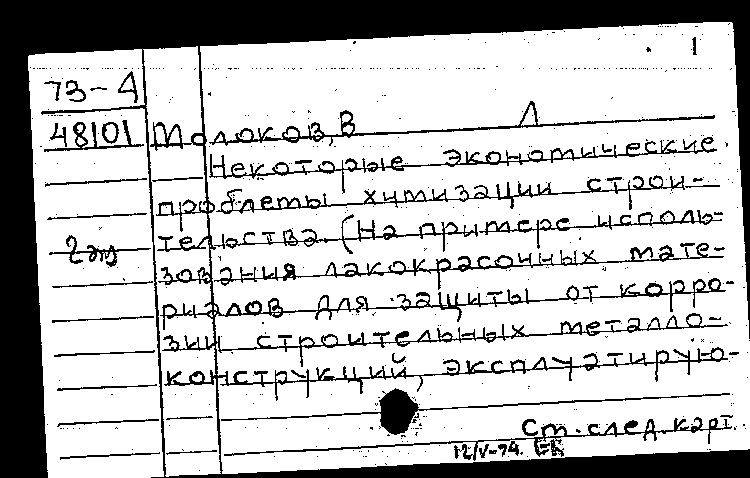 1
73-А
48101 Молоков, В Л
Некоторые экономические
проблемы химизации строи-
тельства. (На примере исполь-
2 эк
зования лакокрасочных мате-
риалов для защиты от корро-
зии строительных металло-
конструкций, эксплуатирую-
Ст. след. карт.
12/V-74. ЕК